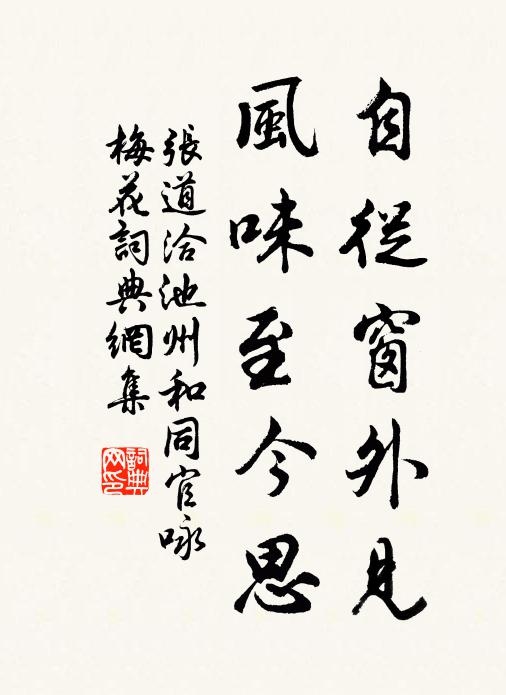 自從窗外見
風味至今思
張道洽池州和同官咏
梅花詞典網集
詞典
网印